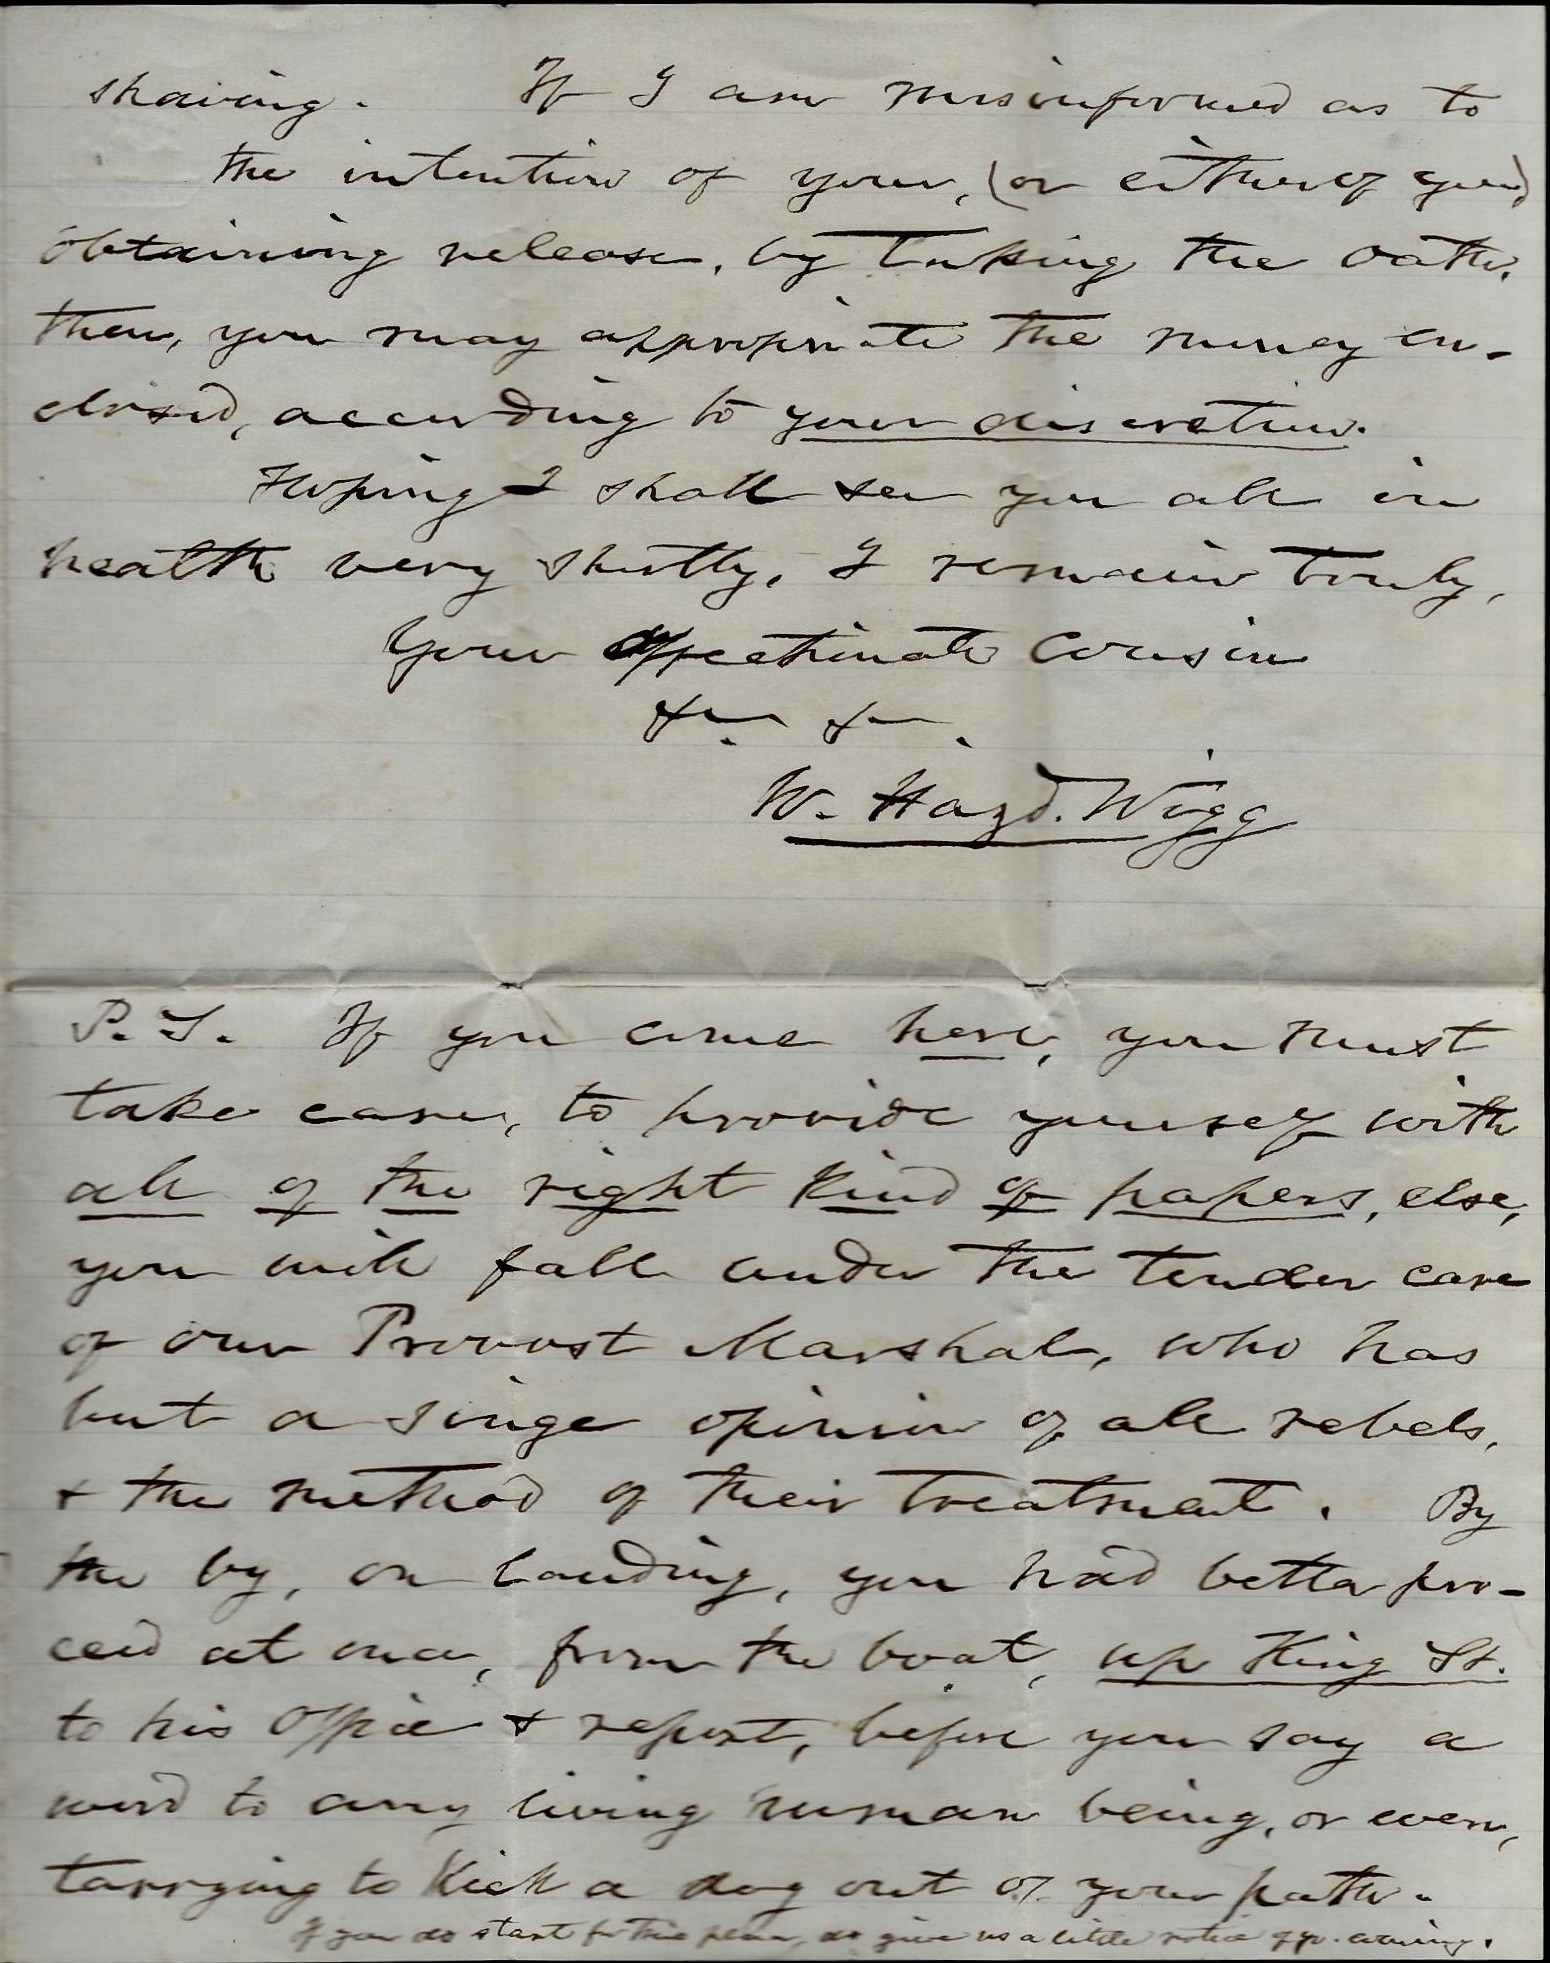 shaving. If I am misinformed as to
the intention of your, (or either of you)
obtaining release, by taking the oath,
then, you may appropriate the money en-
closed, according to your discretion.
Hoping I shall see you all in
health very shortly, I remain truly,
Your affectionate Cousin
&c. &c.
W. Hazd. Wigg
P.S. If you come here, you must
take care, to provide yourself with
all of the right kind of papers, else,
you will fall under the tender care
of our Provost Marshal, who has
but a singe opinion of all rebels,
& the method of their treatment. By
the by, on landing, you had better pro-
ceed at once, from the boat, up King St.
to his office & report, before you say a
word to any living human being, or even,
tarrying to kick a dog out of your path.
If you do start for this place, do give us a little notice of yr. coming.